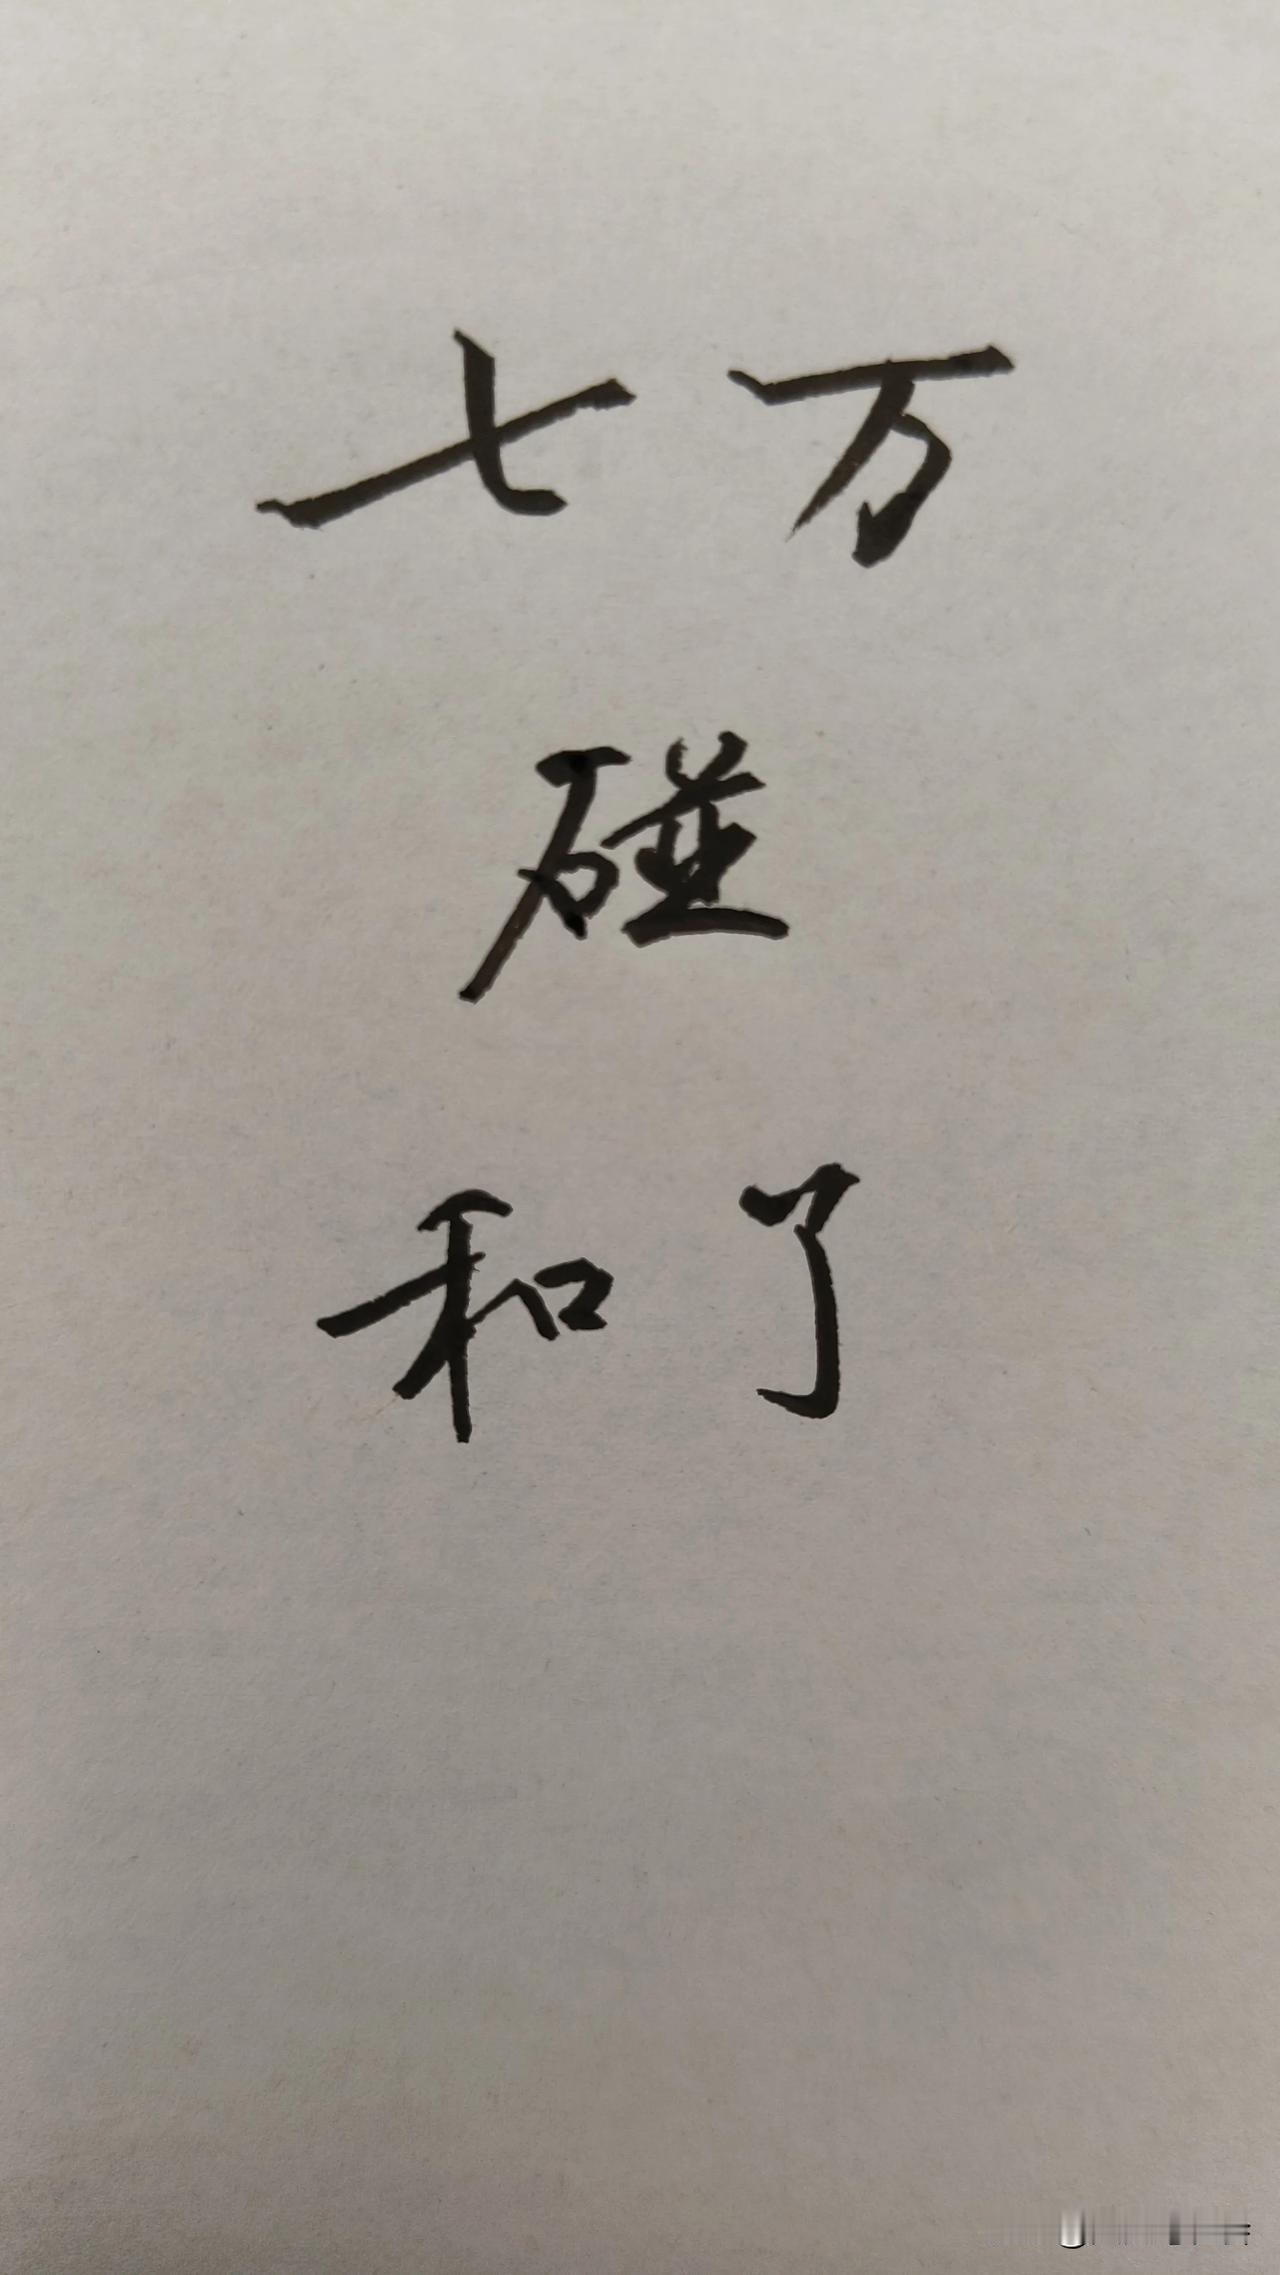 七万
碰
和了